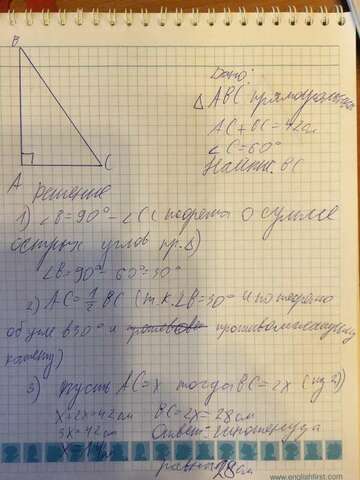 B
Дано:
△ ABC прямоугольный
AC + BC = 42см
∠C = 60°
Найти: BC
A
C
Решение
1) ∠B = 90° - ∠C (теорема о сумме
острых углов пр.△)
∠B = 90° - 60° = 30°
2) AC = 1/2 BC (т.к. ∠B = 30° и по теореме
об угле в 30° и противолежащему
катету)
3) Пусть AC = x тогда BC = 2x (из 2)
x + 2x = 42 см
BC = 2x = 28 см
3x = 42 см
Ответ: гипотенуза
x = 14 см
равна 28 см
www.englishfirst.com